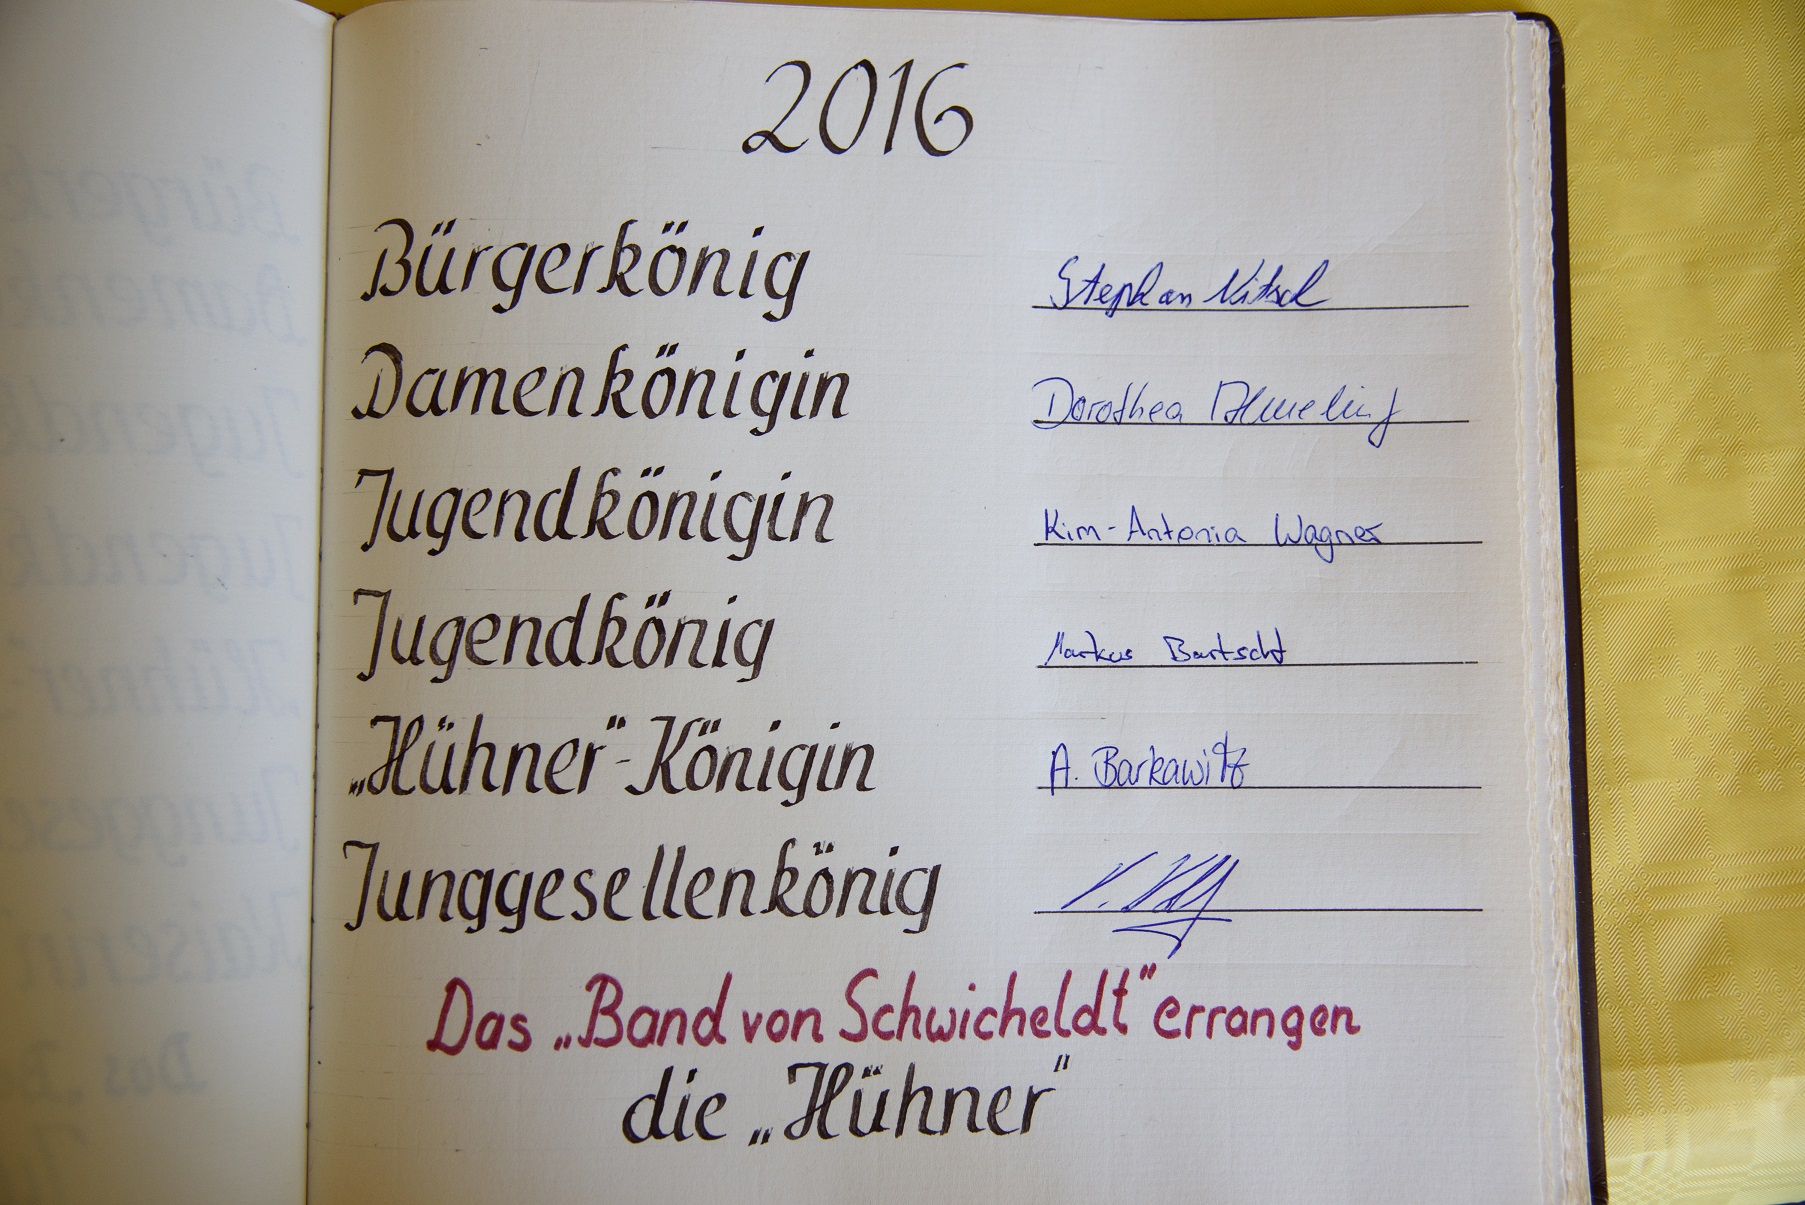 2016
Bürgerkönig Stephan Nitsch
Damenkönigin Dorothea
Jugendkönigin Kim-Antonia Wagner
Jugendkönig Markus Bartscht
„Hühner"-Königin A. Barkawitz
Junggesellenkönig
Das „Band von Schwicheldt" errangen
die „Hühner"